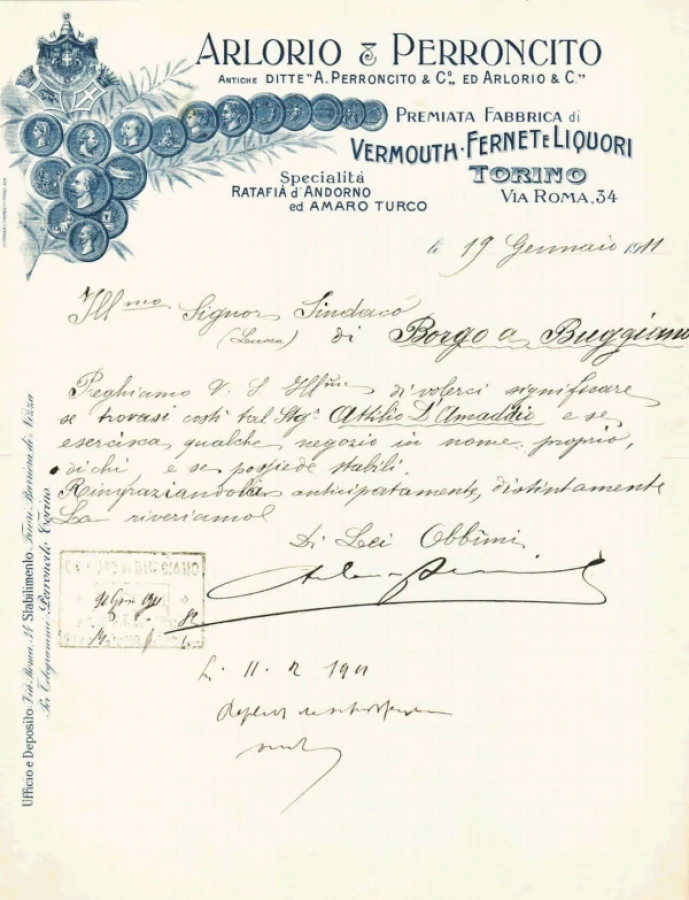 ARLORIO & PERRONCITO
ANTICHE DITTE "A. PERRONCITO & Cº,, ED ARLORIO & C."
PREMIATA FABBRICA di
VERMOUTH-FERNET E LIQUORI
TORINO
VIA ROMA, 34
Specialità
RATAFIÀ d'ANDORNO
ed AMARO TURCO
li 19 Gennaio 1911
Ill.mo Signor Sindaco
(Lucca) di Borgo a Buggiano
Peghiamo V. S. Ill.ma di volerci significare
se trovasi costì tal Sig.r Attilio D'Amaddio e se
esercisca qualche negozio in nome proprio,
o di chi e se possiede stabili.
Ringraziandola anticipatamente, distintamente
La riveriamo
Di Lei Obb.mi
L. 11. 2 1911
Ufficio e Deposito Via Roma, 34 Stabilimento Fuori Barriera di Nizza
Per Telegrammi Perroncito Torino